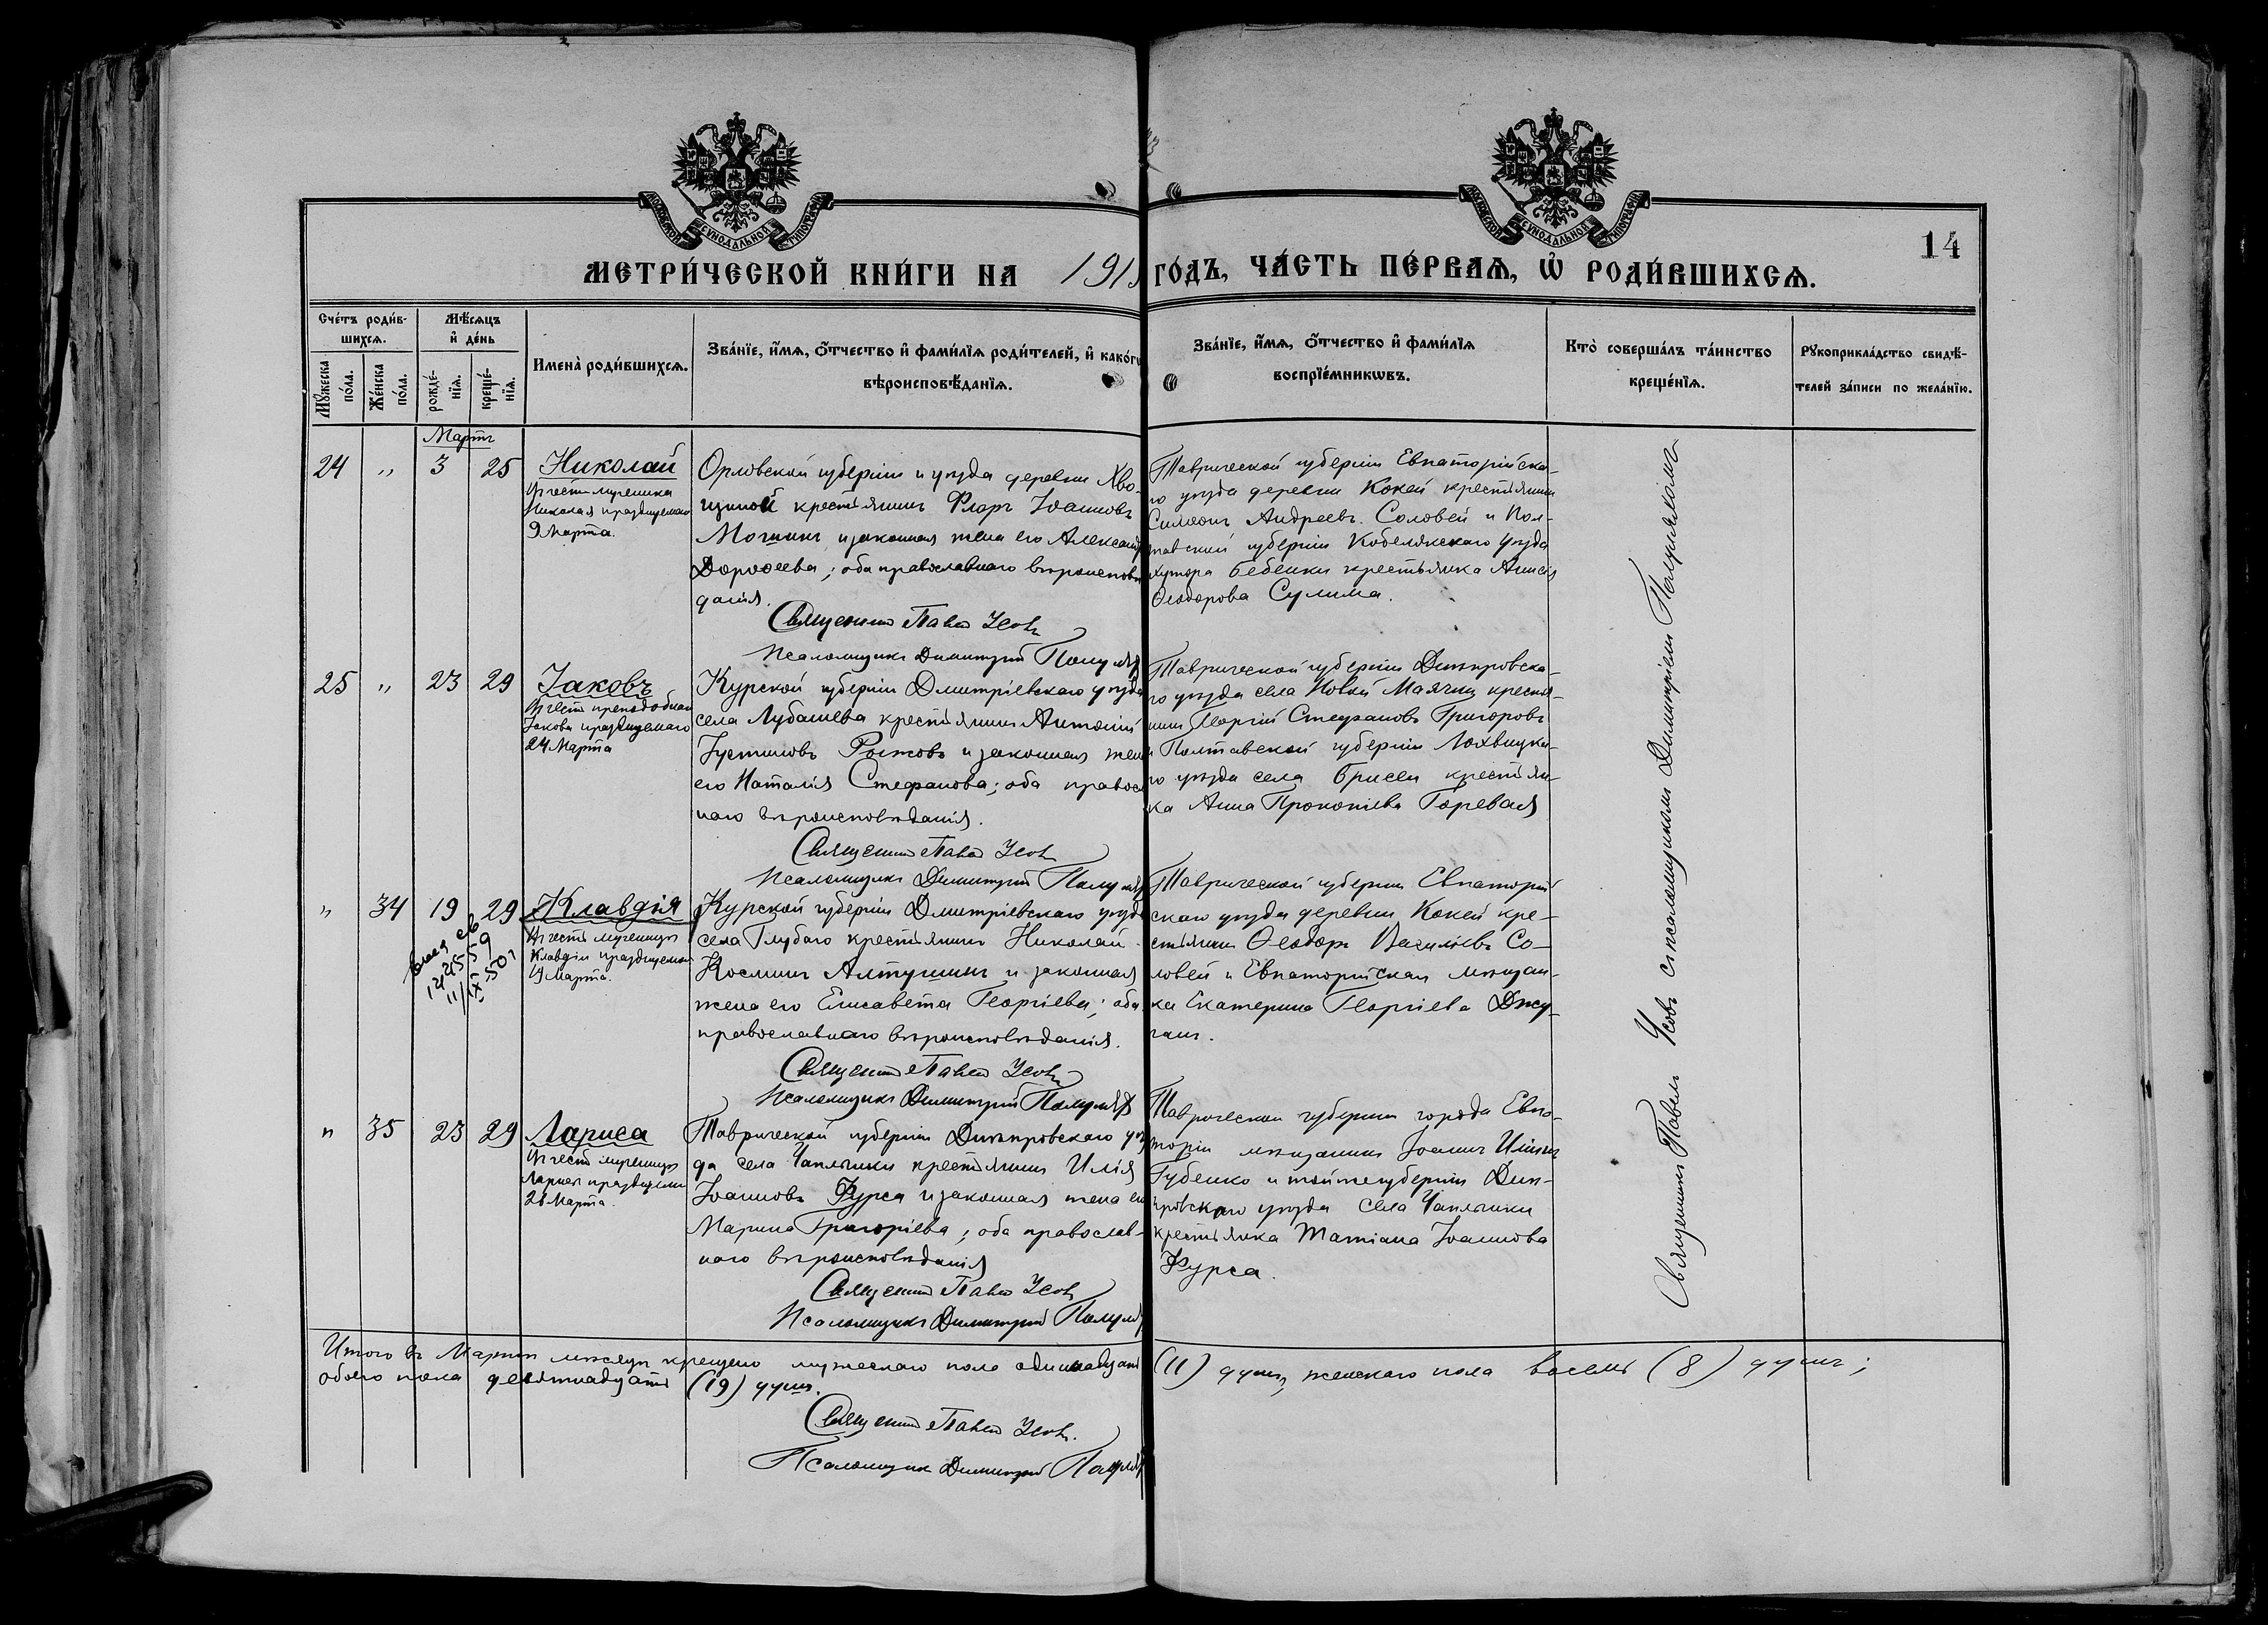 МОСКОВСКОЙ СѴНОДАЛЬНОЙ ТИПОГРАФІИ
МОСКОВСКОЙ СѴНОДАЛЬНОЙ ТИПОГРАФІИ
14
МЕТРИ́ЧЕСКОЙ КНИ́ГИ НА 191
ГО́ДЪ, ЧА́СТЬ ПЕ́РВАѦ, Ѡ҆ РОДИ́ВШИХСѦ.
Сче́тъ роди́в-
шихсѧ.
Мꙋ́жеска по́ла.
Же́нска по́ла.
Мѣ́сѧцъ
и҆ де́нь
рожде́-
нїѧ.
креще́-
нїѧ.
Имена̀ роди́вшихсѧ.
Зва́нїе, и҆́мѧ, ѻ҆́тчество и҆ фами́лїѧ роди́телей, и҆ како́гѡ
вѣроисповѣ́данїѧ.
Зва́нїе, и҆́мѧ, ѻ҆́тчество и҆ фами́лїѧ
воспрїе́мникѡвъ.
Кто̀ соверша́лъ та́инство
креще́нїѧ.
Рꙋкоприкла́дство свидѣ́-
телей за́писи по жела́нїю.
Мартъ
24 " 3 25 Николай
Въ честь мученика
Николая празднуемаго
9 Марта.
Орловской губерніи и уѣзда деревни Хво-
щиной крестьянинъ Флоръ Іоанновъ
Мошкинъ и законная жена его Александра
Дороѳеева; оба православнаго вѣроисповѣ
данія.
Священникъ Павелъ Усовъ
Псаломщикъ Димитрій
Таврической губерніи Евпаторійска-
го уѣзда деревни Кокей крестьянинъ
Симеонъ Андреевъ Соловей и Пол-
тавской губерніи Кобелякскаго уѣзда
хутора Бебешки крестьянка Анисія
Ѳеодорова Сулима.
25 " 23 29 Іаковъ
Въ честь преподобнаго
Іакова празднуемаго
24 Марта
Курской губерніи Дмитріевскаго уѣзда
села Лубашева крестьянинъ Антоній
Іустиновъ Рыжовъ и законная жена
его Наталія Стефанова; оба правос
наго вѣроисповѣданія.
Священникъ Павелъ Усовъ
Псаломщикъ Димитрій
Таврической губерніи Днѣпровска-
го уѣзда села Новой Маячки крестья-
нинъ Георгій Стефановъ Григоровъ
и Полтавской губерніи Лохвицка-
го уѣзда села Брисей крестьян-
ка Анна Прокопіева Горевая
" 34 19 29 Клавдія
Въ честь мученицы
Клавдіи празднуемой
19 Марта.
Курской губерніи Дмитріевскаго уѣзда
села Глубого крестьянинъ Николай
Косминъ Алтушинъ и законная
жена его Елисавета Георгіева; оба
православнаго вѣроисповѣданія.
Священникъ Павелъ Усовъ
Псаломщикъ Димитрій
Таврической губерніи Евпаторій
скаго уѣзда деревни Кокей кре-
стьянинъ Ѳеодоръ Василіевъ Со-
ловей и Евпаторійская мѣщан-
ка Екатерина Георгіева Джу-
" 35 23 29 Лариса
Въ честь мученицы
Ларисы празднуемой
26 Марта.
Таврической губерніи Днѣпровскаго уѣз
да села Чаплинки крестьянинъ Илія
Іоанновъ Фурса и законная жена его
Марина Григоріева; оба православ-
наго вѣроисповѣданія
Священникъ Павелъ Усовъ
Псаломщикъ Димитрій
Таврической губерніи города Евпа-
торіи мѣщанинъ Іоаннъ Иліинъ
Губенко и той же губерніи Днѣ-
провскаго уѣзда села Чаплинки
крестьянка Татіана Іоаннова
Фурса.
Священникъ Павелъ Усовъ съ псаломщикомъ Димитріемъ
Итого въ Мартѣ мѣсяцѣ крещено мужескаго пола одиннадцать (11) душъ, женскаго пола восемь (8) душъ;
обоего пола девятнадцать (19) душъ.
Священникъ Павелъ Усовъ.
Псаломщикъ Димитрій